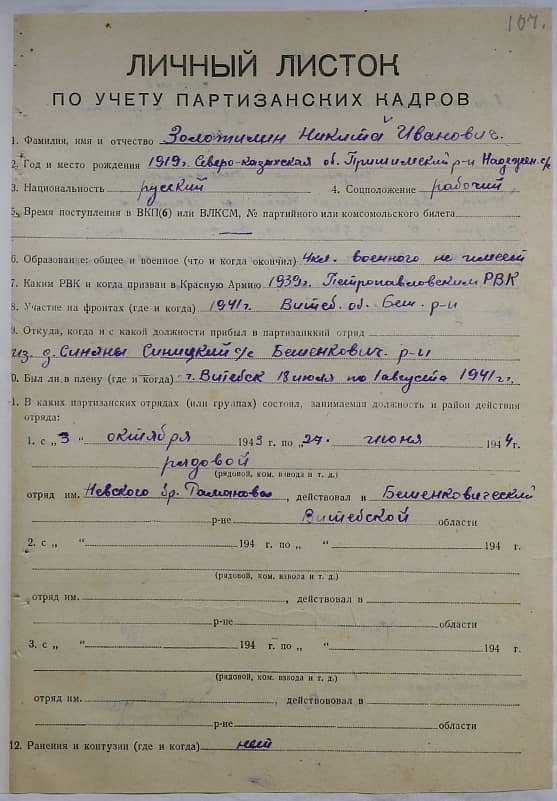 107.
ЛИЧНЫЙ ЛИСТОК
ПО УЧЕТУ ПАРТИЗАНСКИХ КАДРОВ
1. Фамилия, имя и отчество Золотилин Никитай Иванович.
2. Год и место рождения 1919г. Северо-Казахская об. Пришимский р-н Надежен. с/с
3. Национальность русский 4. Соцположение рабочий
5. Время поступления в ВКП(б) или ВЛКСМ, № партийного или комсомольского билета
—
6. Образование: общее и военное (что и когда окончил) 4кл. военного не имеет
7. Каким РВК и когда призван в Красную Армию 1939г. Петропавловским РВК
8. Участие на фронтах (где и когда) 1941г. Витеб. об. Беш. р-н
9. Откуда, когда и с какой должности прибыл в партизанкий отряд
из д. Синяны Синицкий с/с Бешенкович. р-н
10. Был ли в плену (где и когда) г. Витебск 18 июля по 1 августа 1941 г.
11. В каких партизанских отрядах (или группах) состоял, занимаемая должность и район действия
отряда:
1. с „3" октября 1943 г. по „27." июня 1944 г.
рядовой
(рядовой, ком. взвода и т. д.)
отряд им. Невского бр. , действовал в Бешенковический
р-не Витебской области
2. с „ " 194 г. по „ " 194 г.
(рядовой, ком. взвода и т. д.)
отряд им. , действовал в
р-не области
3. с „ " 194 г. по „ " 194 г.
(рядовой, ком. взвода и т. д.)
отряд им. , действововал в
р-не области
12. Ранения и контузии (где и когда) нет